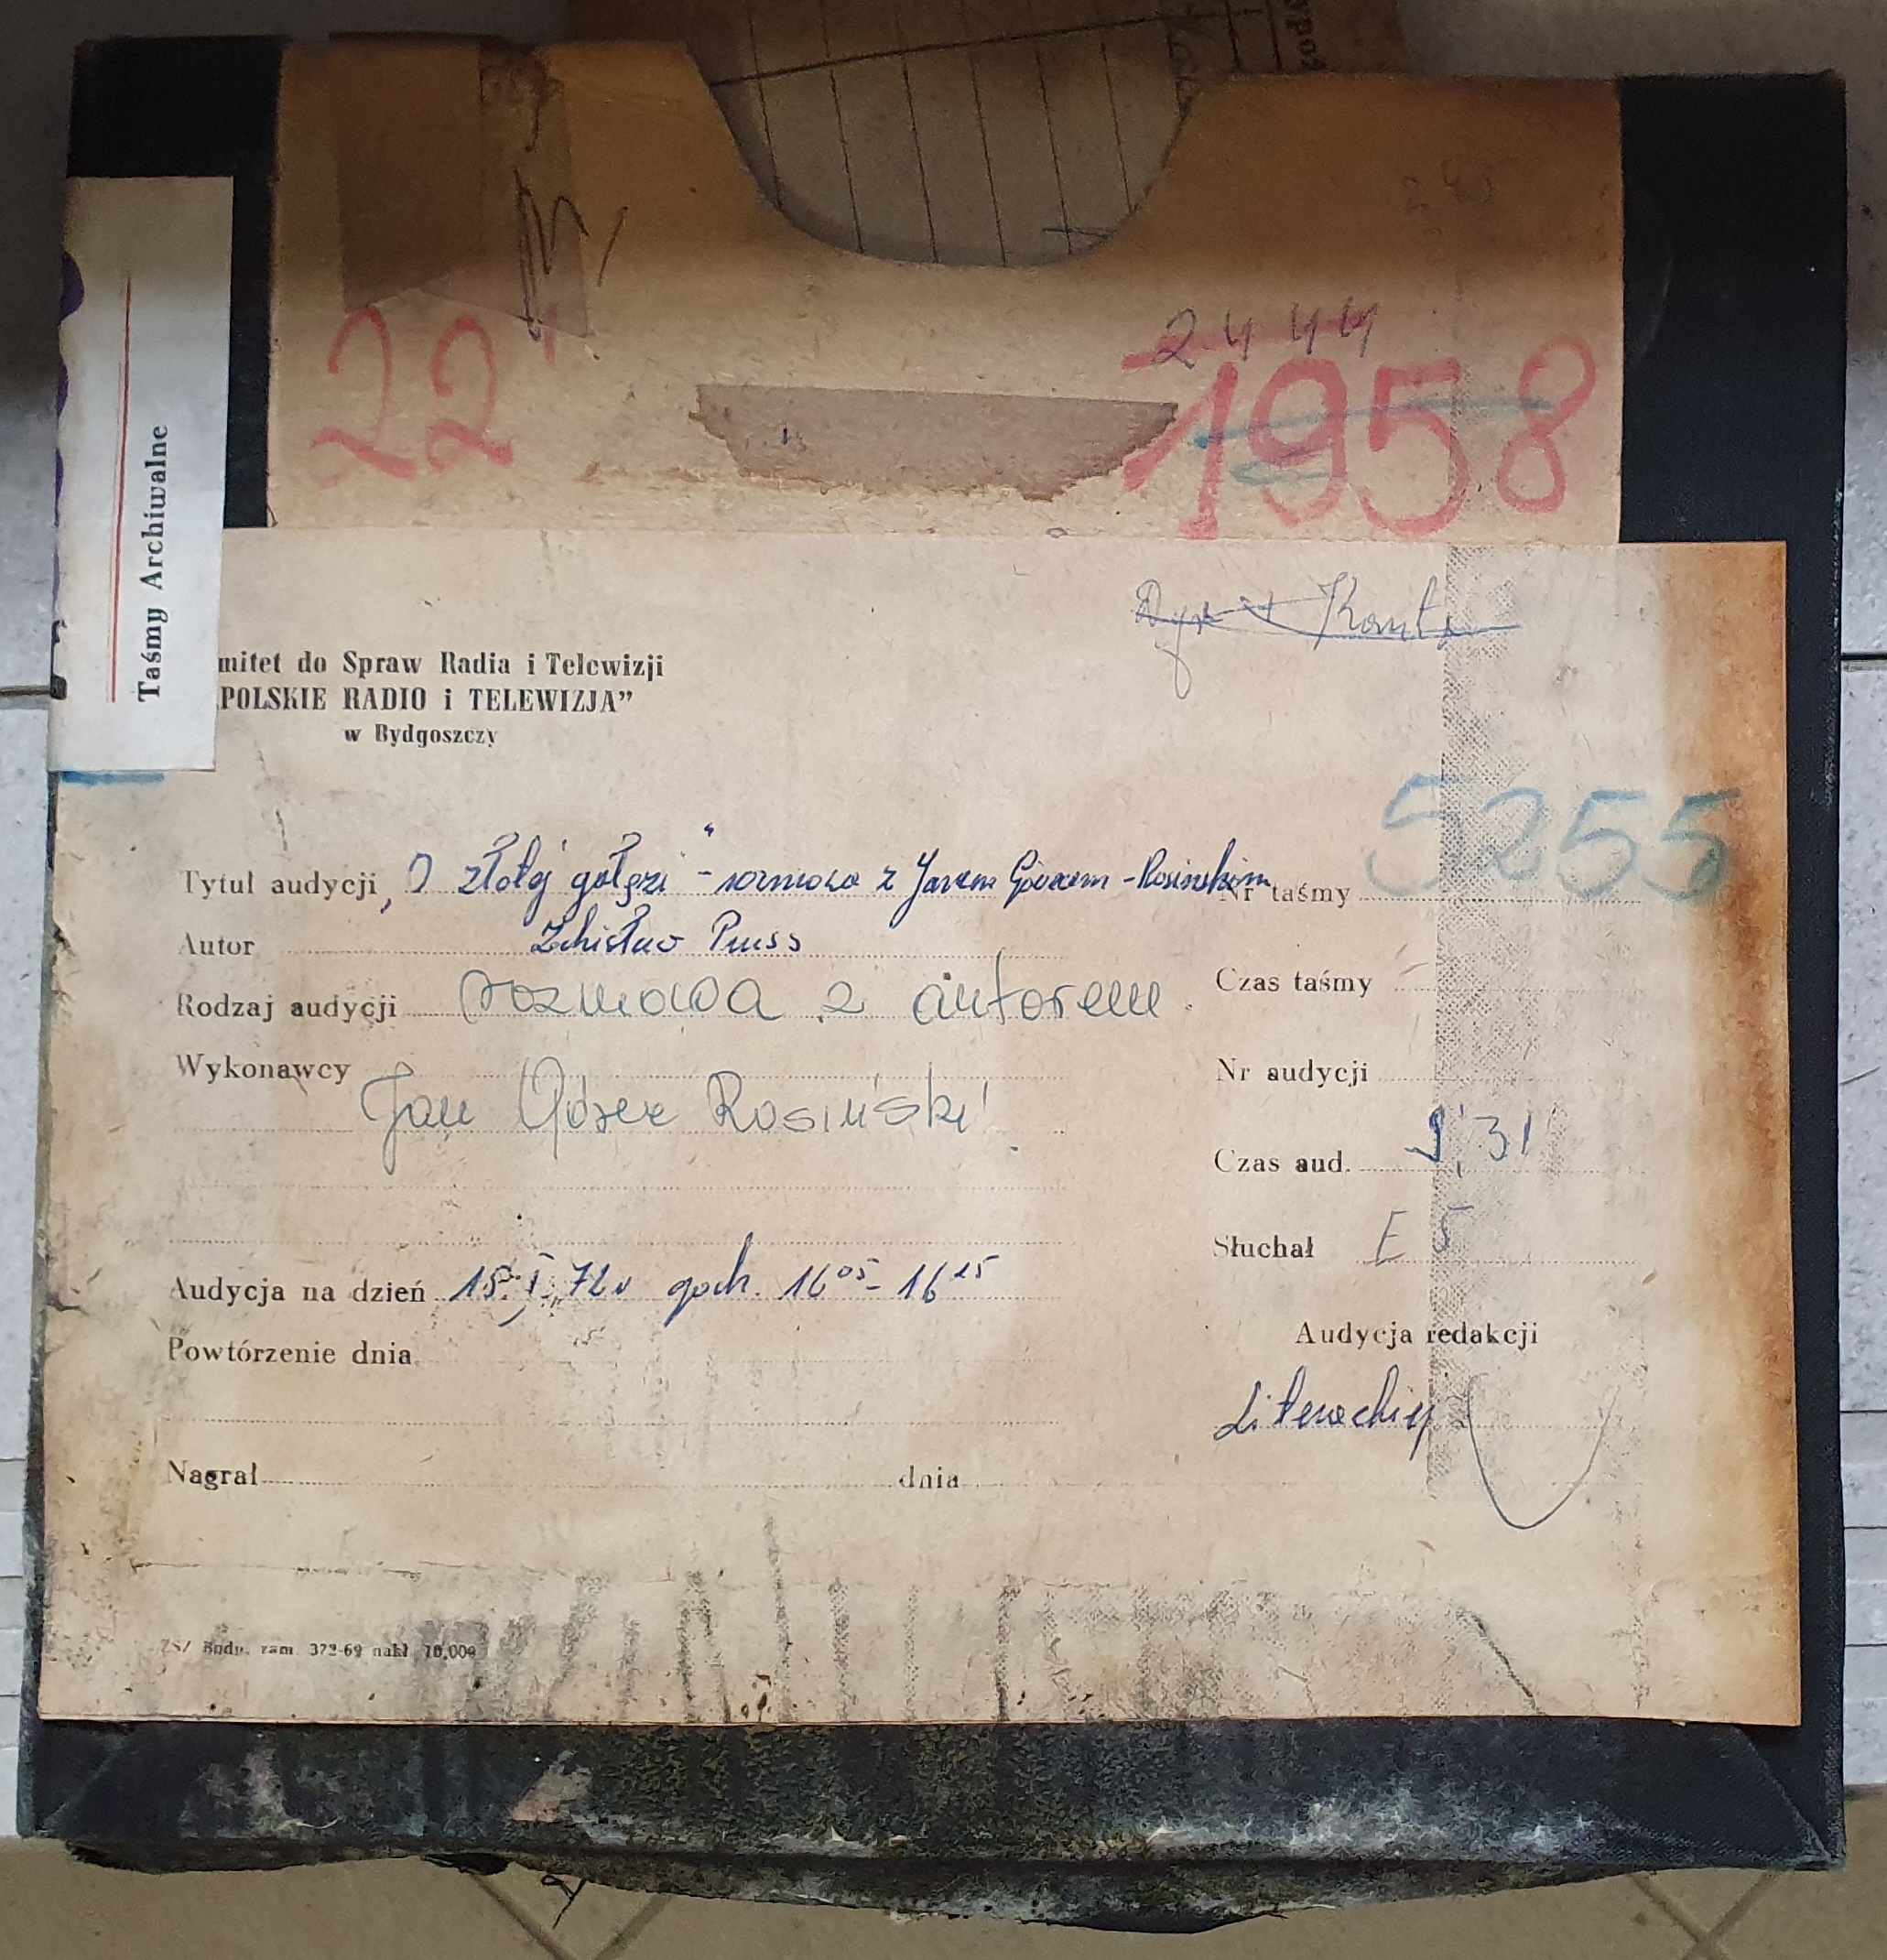 22'
2444
1958
Taśmy Archiwalne
mitet do Spraw Radia i Telewizji
„POLSKIE RADIO i TELEWIZJA”
w Bydgoszczy
5255
Tytuł audycji „O złotej gałęzi" - rozmowa z Janem Górzem-Rosińskim
Nr taśmy
Autor Zdzisław Pruss
Rodzaj audycji rozmowa z autorem
Czas taśmy
Wykonawcy
Nr audycji
Jan Górze Rosiński
Czas aud. 9,31
Słuchał E
Audycja na dzień 15.I.72r godz. 16 05 - 16 25
Audycja redakcji
Powtórzenie dnia
Literackiej
Nagrał dnia
zam. 372-69 nakł. 10.000